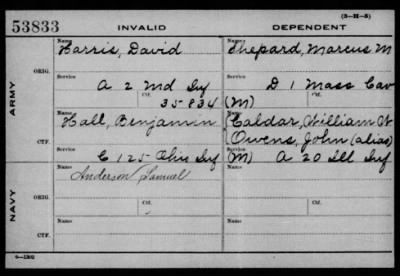 (3-H-5)
53833 INVALID DEPENDENT
Name Name
Harris, David Shepard, Marcus M
ORIG. Service Service
A 2 Md Inf D 1 Mass Cav
Ctf. Ctf.
35834 (M)
ARMY
Name Name
Hall, Benjamin Caldar, William N
Owens, John (alias)
CTF. Service Service
C 125 Ohio Inf (M) A 20 Ill Inf
Name Name
Anderson, Samuel
ORIG. Service Service
Ctf. Ctf.
NAVY
Name Name
CTF.